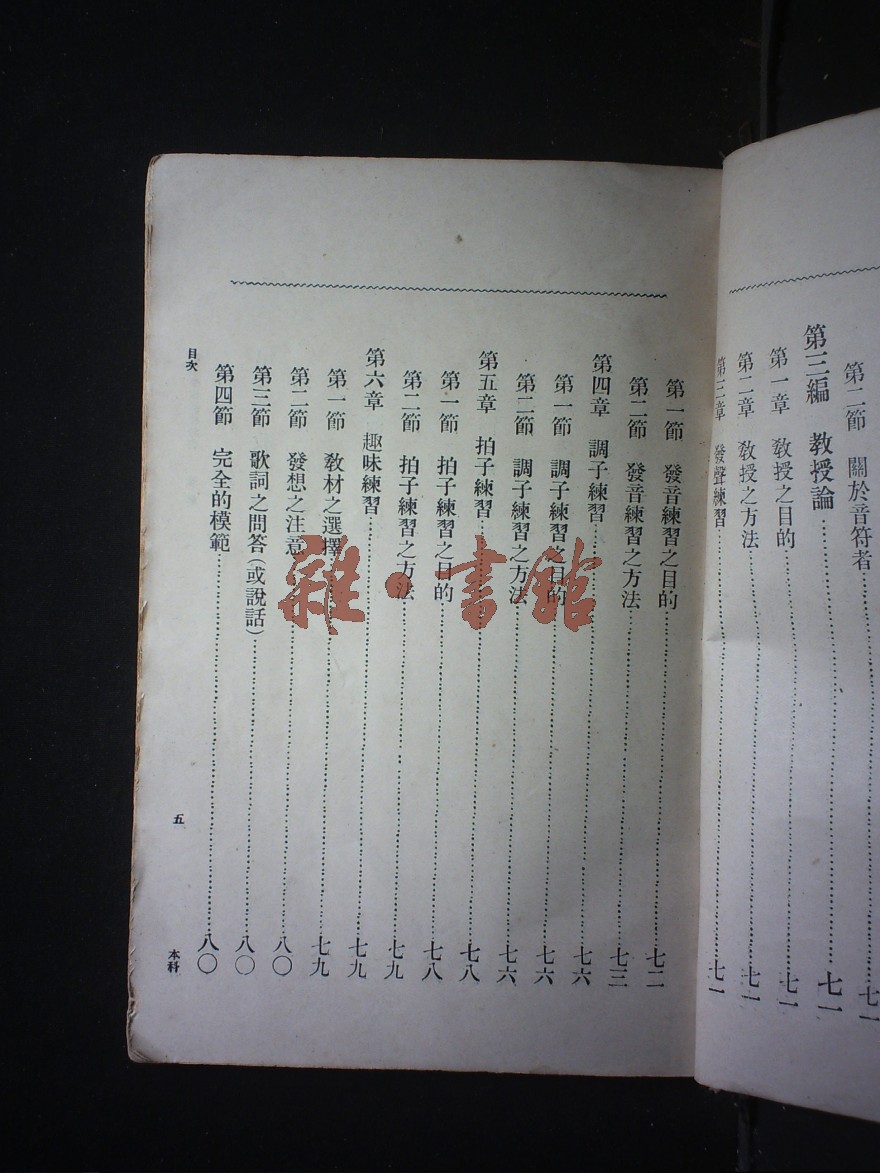 第二節　關於音符者……七一
第三編　教授論……七一
第一章　教授之目的……七一
第二章　教授之方法……七一
第三章　發聲練習……七一
第一節　發音練習之目的……七二
第二節　發音練習之方法……七三
第四章　調子練習……七六
第一節　調子練習之目的……七六
第二節　調子練習之方法……七六
第五章　拍子練習……七八
第一節　拍子練習之目的……七八
第二節　拍子練習之方法……七九
第六章　趣味練習……七九
第一節　教材之選擇……七九
第二節　發想之注意……八〇
第三節　歌詞之問答（或說話）……八〇
第四節　完全的模範……八〇
目次　五　本科
雜·書館